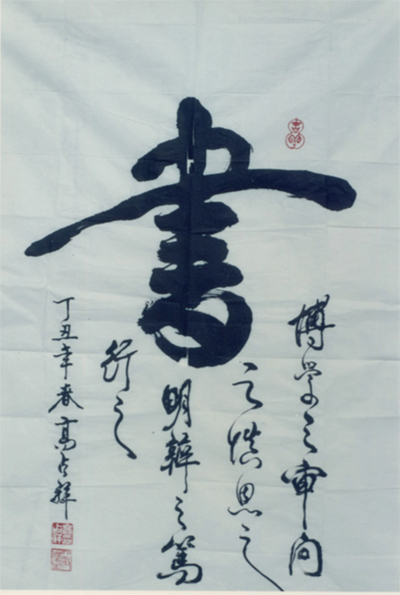 書
博学之审问
之慎思之
明辨之笃
行之
丁丑年春高占祥